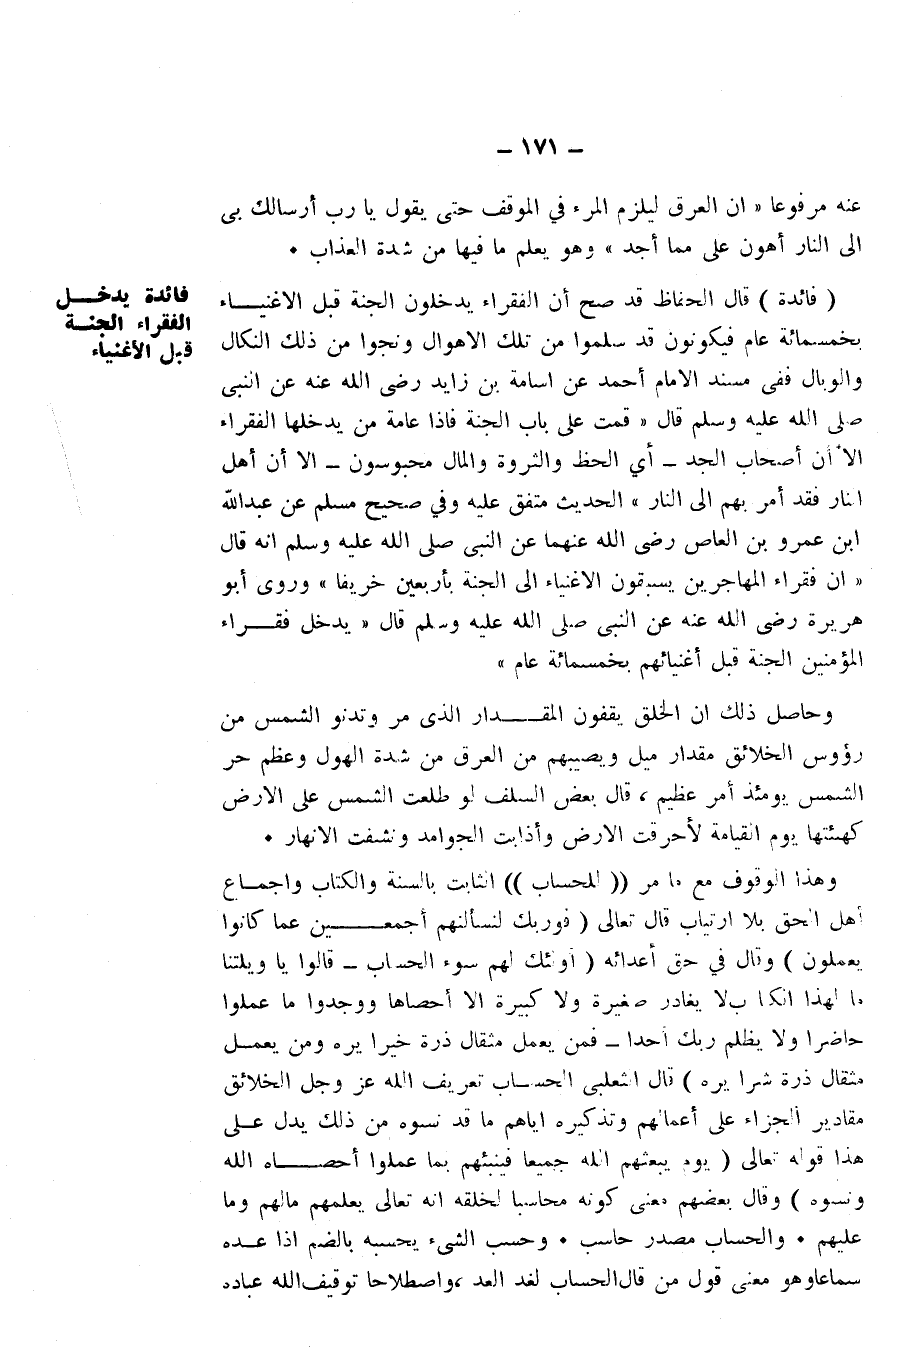 – ١٧١ –
عنه مرفوعا « ان العرق ليلزم المرء في الموقف حتى يقول يا رب أرسالك بى
الى النار أهون على مما أجد » وهو يعلم ما فيها من شدة العذاب •
( فائدة ) قال الحفاظ قد صح أن الفقراء يدخلون الجنة قبل الاغنياء
بخمسمائة عام فيكونون قد سلموا من تلك الاهوال ونجوا من ذلك النكال
والوبال ففى مسند الامام أحمد عن اسامة بن زايد رضى الله عنه عن النبى
صلى الله عليه وسلم قال « قمت على باب الجنة فاذا عامة من يدخلها الفقراء
الا أن أصحاب الجد – أي الحظ والثروة والمال محبوسون – الا أن أهل
النار فقد أمر بهم الى النار » الحديث متفق عليه وفي صحيح مسلم عن عبدالله
ابن عمرو بن العاص رضى الله عنهما عن النبى صلى الله عليه وسلم انه قال
« ان فقراء المهاجرين يسبقون الاغنياء الى الجنة بأربعين خريفا » وروى أبو
هريرة رضى الله عنه عن النبى صلى الله عليه وسلم قال « يدخل فقراء
المؤمنين الجنة قبل أغنيائهم بخمسمائة عام »
فائدة يدخل
الفقراء الجنة
قبل الأغنياء
وحاصل ذلك ان الخلق يقفون المقدار الذى مر وتدنو الشمس من
رؤوس الخلائق مقدار ميل ويصيبهم من العرق من شدة الهول وعظم حر
الشمس يومئذ أمر عظيم ، قال بعض السلف لو طلعت الشمس على الارض
كهيئتها يوم القيامة لأحرقت الارض وأذابت الجوامد ونشفت الانهار •
وهذا الوقوف مع ما مر (( للحساب )) الثابت بالسنة والكتاب واجماع
أهل الحق بلا ارتياب قال تعالى ( فوربك لنسألنهم أجمعين عما كانوا
يعملون ) وقال في حق أعدائه ( أولئك لهم سوء الحساب – قالوا يا ويلتنا
ما لهذا الكتاب لا يغادر صغيرة ولا كبيرة الا أحصاها ووجدوا ما عملوا
حاضرا ولا يظلم ربك أحدا – فمن يعمل مثقال ذرة خيرا يره ومن يعمل
مثقال ذرة شرا يره ) قال الثعلبي الحساب تعريف الله عز وجل الخلائق
مقادير الجزاء على أعمالهم وتذكيره اياهم ما قد نسوه من ذلك يدل على
هذا قوله تعالى ( يوم يبعثهم الله جميعا فينبئهم بما عملوا أحصاه الله
ونسوه ) وقال بعضهم معنى كونه محاسبا لخلقه انه تعالى يعلمهم مالهم وما
عليهم • والحساب مصدر حاسب • وحسب الشىء يحسبه بالضم اذا عده
سماعاوهو معنى قول من قال‌الحساب لغد العد ،واصطلاحا توقيف‌الله عباده